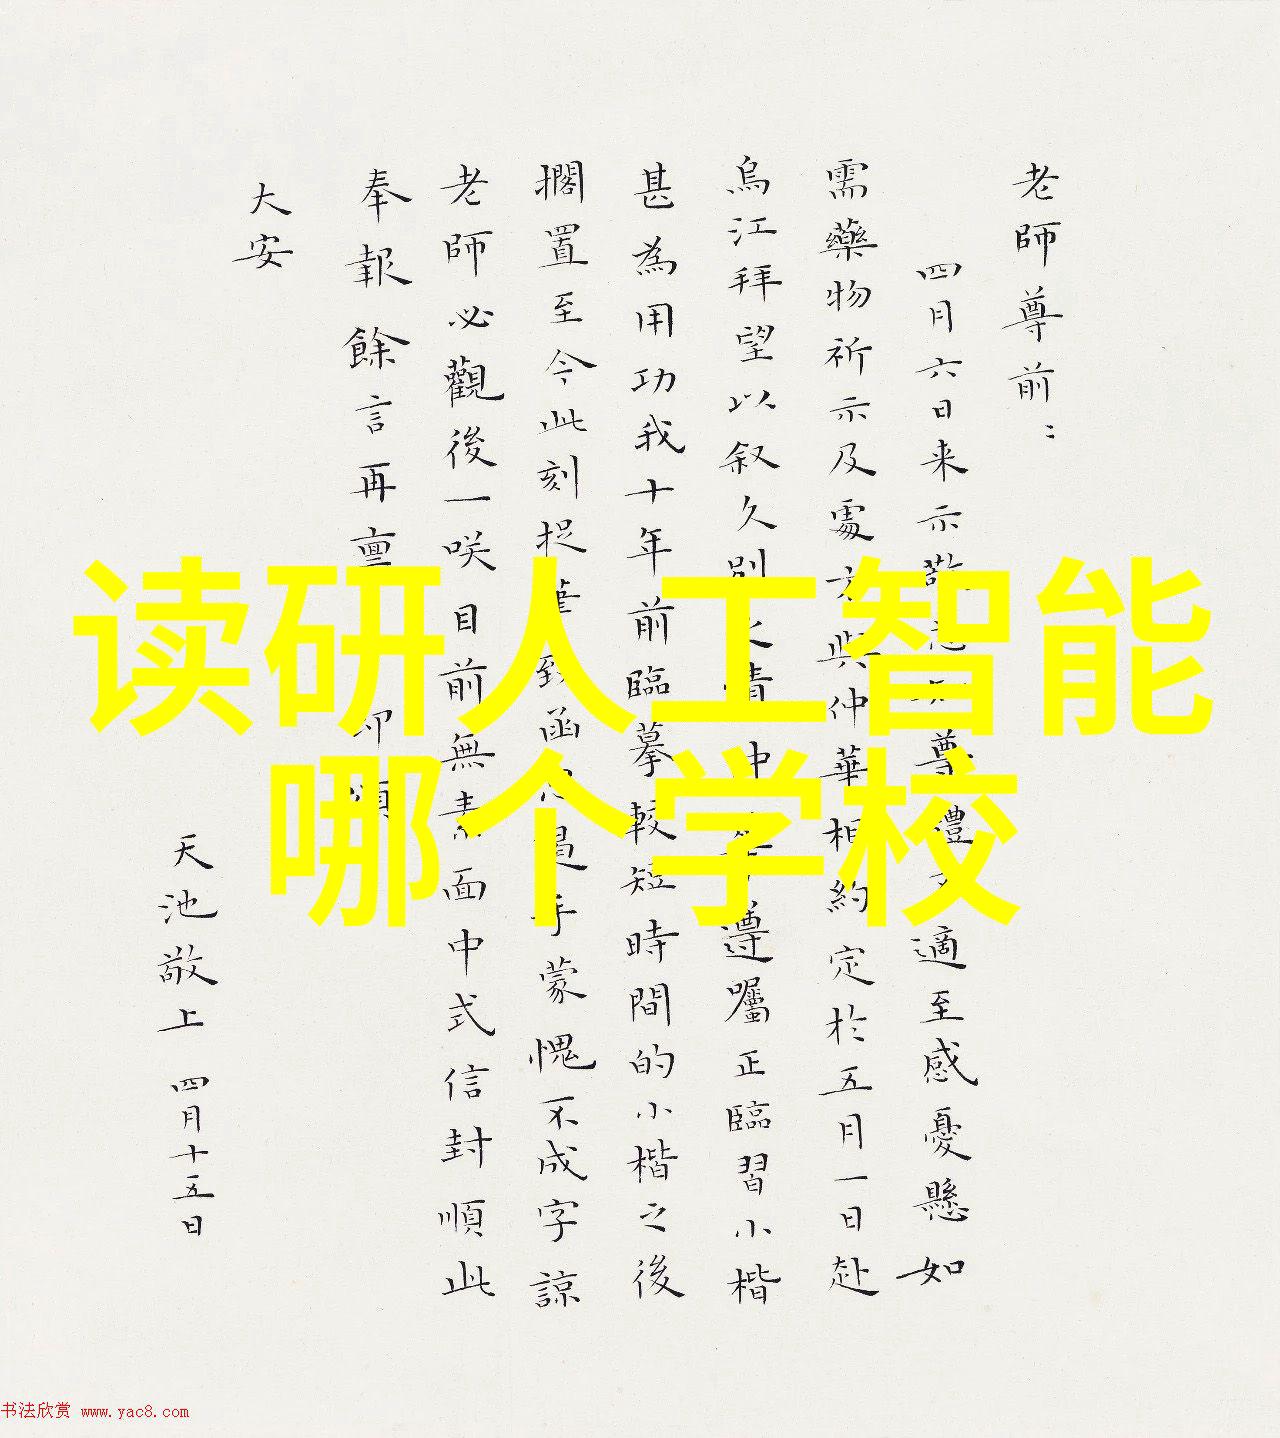 读研人工智能
哪个学校
老師尊前：
四月六日来示敬悉尊禮文適至感憂懸如
需藥物祈示及處方與仲華相約定於五月一日赴
烏江拜望以叙久別之情中遵囑正臨習小楷
甚為用功我十年前臨摹較短時間的小楷之後
擱置至今此刻捉筆致函只是手蒙愧不成字諒
老師必觀後一咲目前無素面中式信封順此
奉報餘言再亶即頌
大安
天池敬上 四月十五日
书法欣赏 www.yac8.com